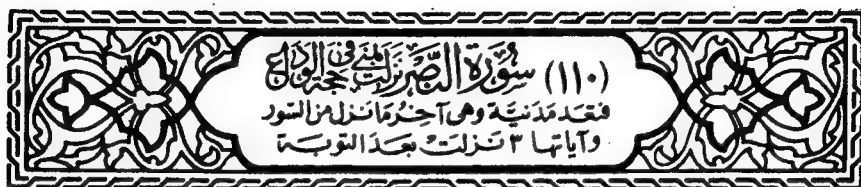 (١١٠) سُورَة النَّصْر نَزَلَتْ بِمِنًى فِى حَجَّةِ الوَدَاع
فتعد مَدنيَّة وهى آخِرُ مَا نَزل مِنَ السُّوَر
وَآيَاتهَا ٣ نَزلَتْ بَعدَ التوبَة